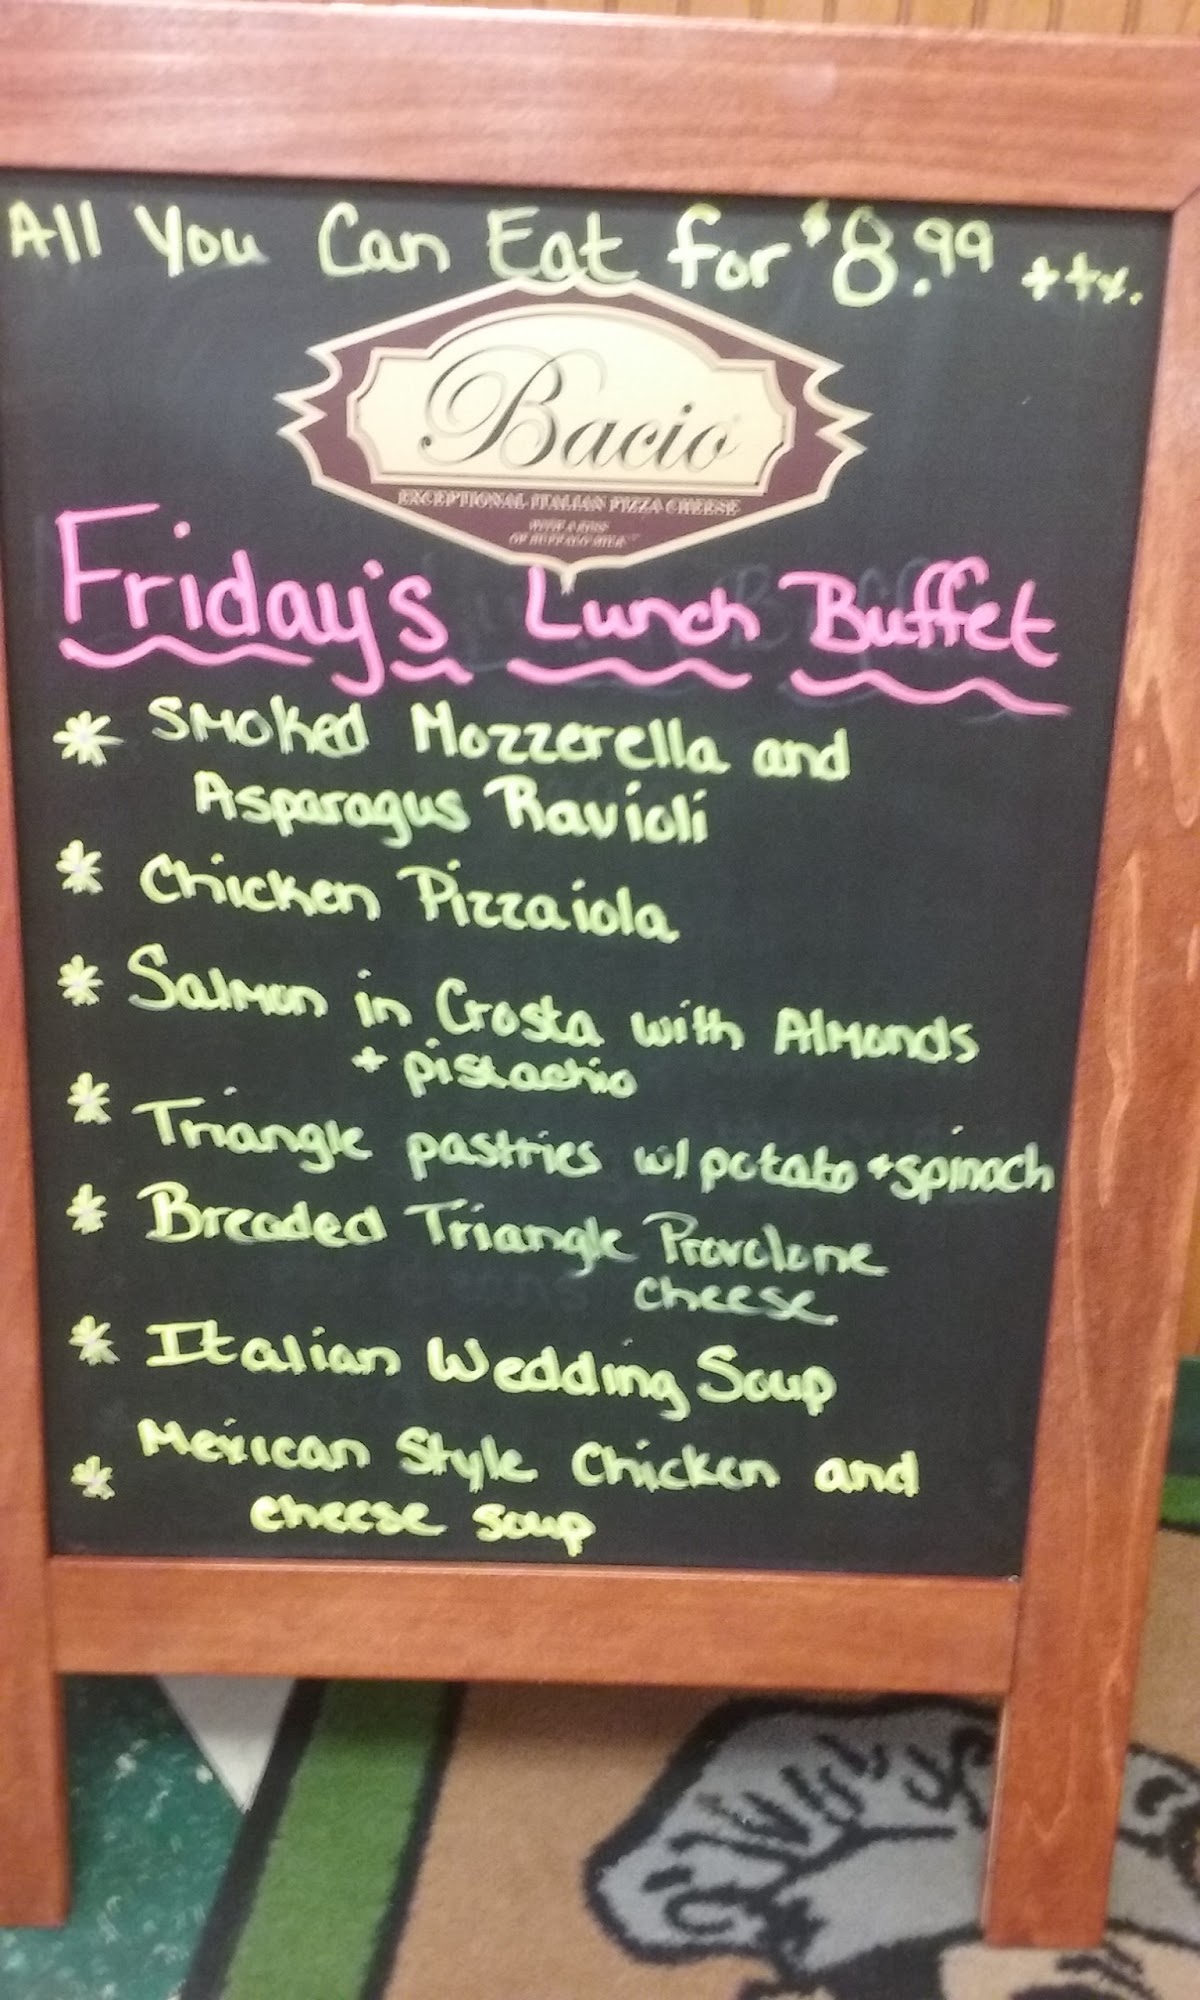 All You Can Eat for $8.99 + tx.
Bacio
EXCEPTIONAL ITALIAN PIZZA CHEESE
WITH A KISS
OF BUFFALO MILK™
Friday's Lunch Buffet
* Smoked Mozzerella and
Asparagus Ravioli
* Chicken Pizzaiola
* Salmon in Crosta with Almonds
+ pistachio
* Triangle pastries w/ potato + spinach
* Breaded Triangle Provolone
cheese
* Italian Wedding Soup
* Mexican Style Chicken and
cheese soup